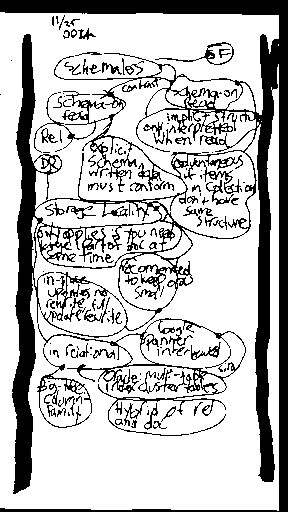 11/25
DDIA
Schemaless
contrast
Schema-on
read
Schema-on
Read
Rel
implicit structure
only interpretted
when read
explicit
Schema,
written data
must conform
advantageous
if items
in collection
don't have
same
structure
Storage Locality
only applies if you need
large part of doc at
same time
recommended
to keep docs
small
in-place
updates no
rewrite full
update rewrite
Google
Spanner
interleaved
in relational
Big-table
Column-
family
Oracle: multi-table
index cluster tables
Hybrid of rel
and doc